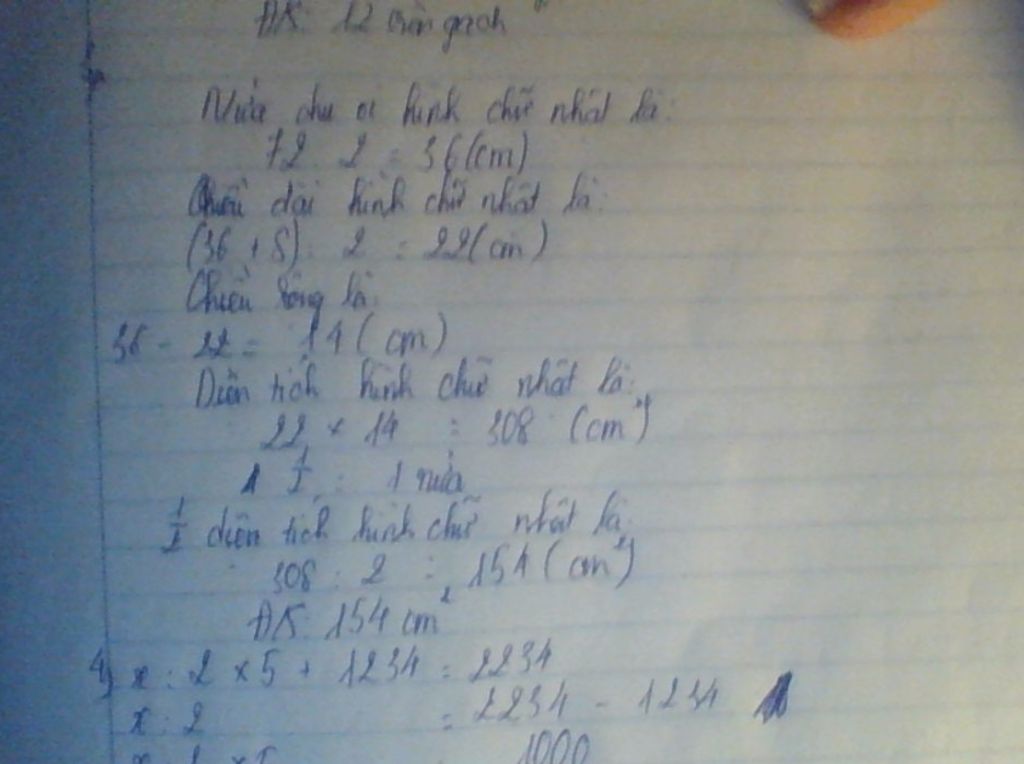 ĐS: 12 viên gạch
Nửa chu vi hình chữ nhật là:
72 : 2 = 36 (cm)
Chiều dài hình chữ nhật là:
(36 + 8) : 2 = 22 (cm)
Chiều rộng là:
36 - 22 = 14 (cm)
Diện tích hình chữ nhật là:
22 x 14 = 308 (cm²)
1/2 = 1 nửa
1/2 diện tích hình chữ nhật là:
308 : 2 = 154 (cm²)
ĐS: 154 cm²
4) x : 2 x 5 + 1234 = 2234
x : 2 = 2234 - 1234
1000